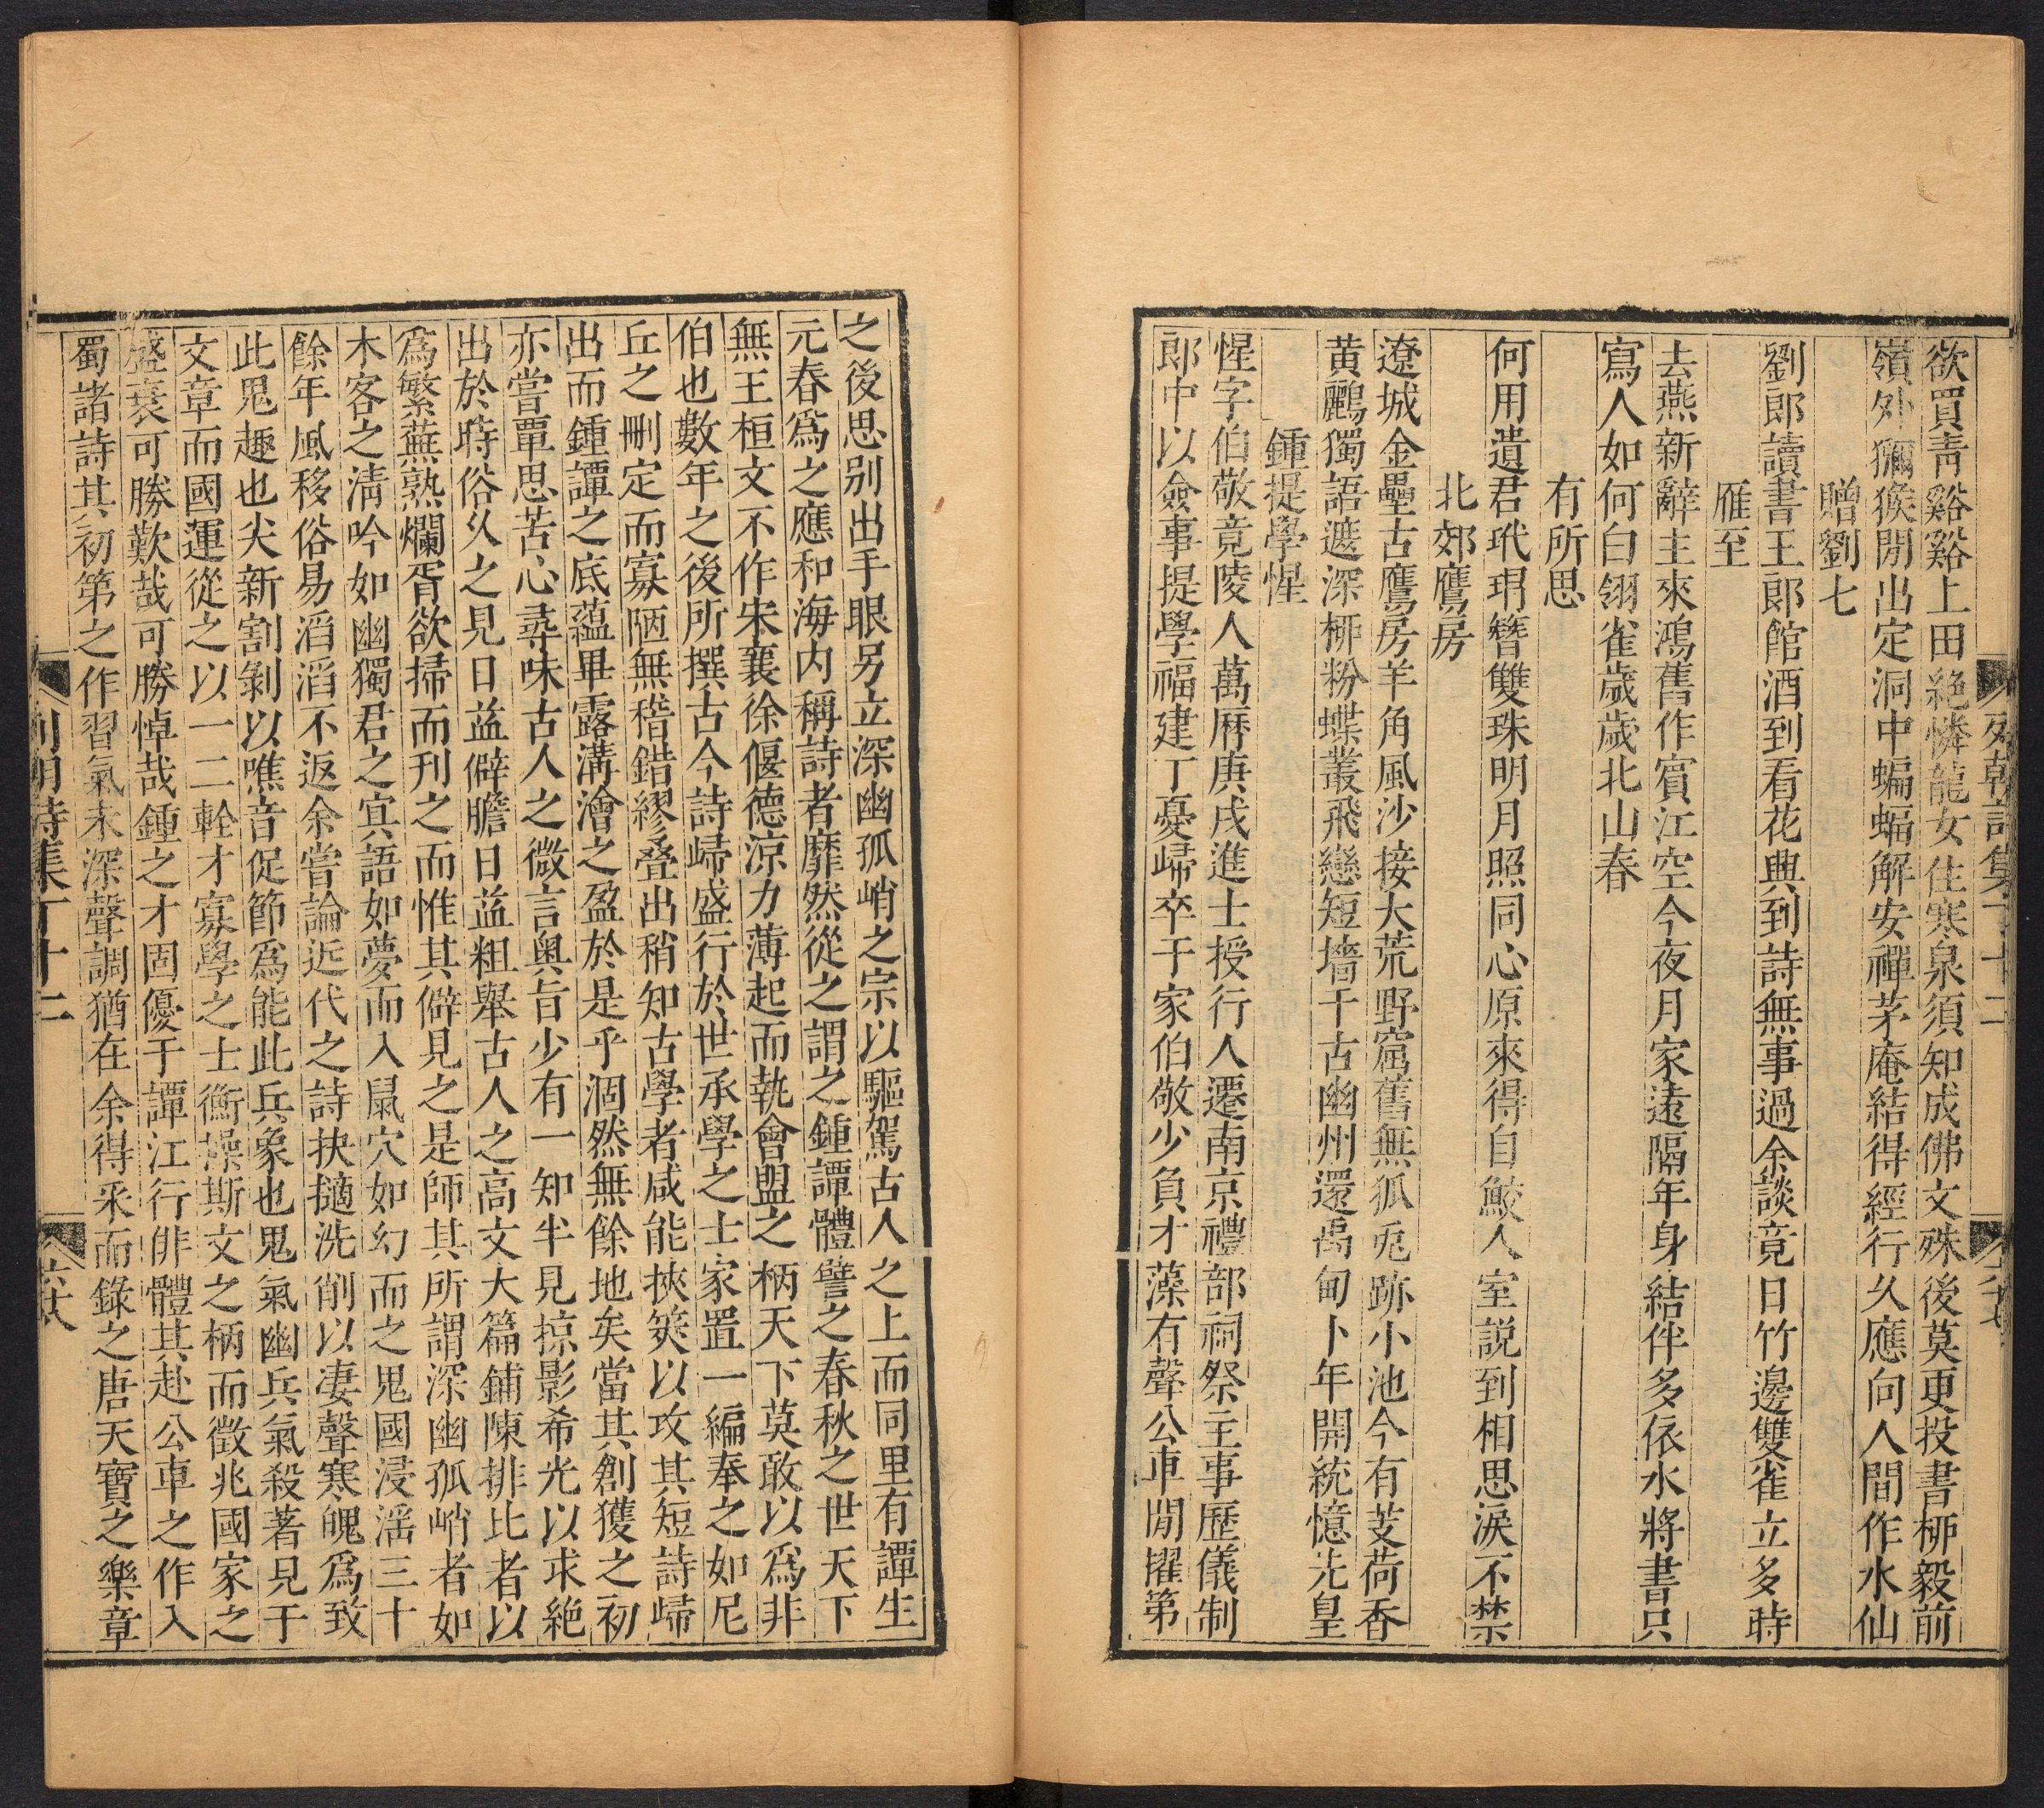 列朝詩集丁十二
六十七
欲買青谿谿上田絶憐龍女住寒泉須知成佛文殊後莫更投書柳毅前
嶺外獼猴閒出定洞中蝙蝠解安禪茅庵結得經行久應向人間作水仙
贈劉七
劉郎讀書王郎館酒到看花興到詩無事過余談竟日竹邊雙雀立多時
雁至
去燕新辭主來鴻舊作賓江空今夜月家遠隔年身結伴多依水將書只
寫人如何白翎雀歲歲北山春
有所思
何用遺君玳瑁簪雙珠明月照同心原來得自鮫人室説到相思淚不禁
北郊鷹房
遼城金壘古鷹房羊角風沙接大荒野窟舊無狐兎跡小池今有芰荷香
黄鸝獨語遮深柳粉蝶叢飛戀短墻千古幽州還禹甸卜年開統憶先皇
鍾提學惺
惺字伯敬竟陵人萬曆庚戌進士授行人遷南京禮部祠祭主事歷儀制
郎中以僉事提學福建丁憂歸卒于家伯敬少負才藻有聲公車閒擢第
之後思别出手眼另立深幽孤峭之宗以驅駕古人之上而同里有譚生
元春爲之應和海内稱詩者靡然從之謂之鍾譚體譬之春秋之世天下
無王桓文不作宋襄徐偃德凉力薄起而執會盟之柄天下莫敢以爲非
伯也數年之後所撰古今詩歸盛行於世承學之士家置一編奉之如尼
丘之刪定而寡陋無稽錯繆叠出稍知古學者咸能挾筴以攻其短詩歸
出而鍾譚之底蘊畢露溝澮之盈於是乎涸然無餘地矣當其創獲之初
亦嘗覃思苦心尋味古人之微言奥旨少有一知半見掠影希光以求絶
出於時俗久之見日益僻膽日益粗舉古人之高文大篇鋪陳排比者以
爲繁蕪熟爛胥欲掃而刊之而惟其僻見之是師其所謂深幽孤峭者如
木客之清吟如幽獨君之冥語如夢而入鼠穴如幻而之鬼國浸滛三十
餘年風移俗易滔滔不返余嘗論近代之詩抉擿洗削以凄聲寒魄爲致
此鬼趣也尖新割剝以噍音促節爲能此兵象也鬼氣幽兵氣殺著見于
文章而國運從之以一二輇才寡學之士衡操斯文之柄而徵兆國家之
盛衰可勝歎哉可勝悼哉鍾之才固優于譚江行俳體其赴公車之作入
蜀諸詩其初第之作習氣未深聲調猶在余得采而錄之唐天寶之樂章
列朝詩集丁十二
六十八